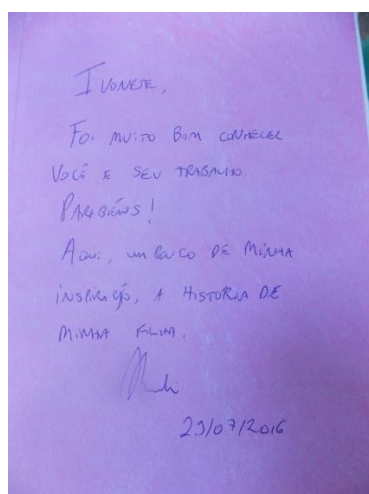 IVONETE,
FOI MUITO BOM CONHECER
VOCÊ E SEU TRABALHO.
PARABÉNS!
AQUI, UM POUCO DE MINHA
INSPIRAÇÃO, A HISTÓRIA DE
MINHA FILHA.
29/07/2016